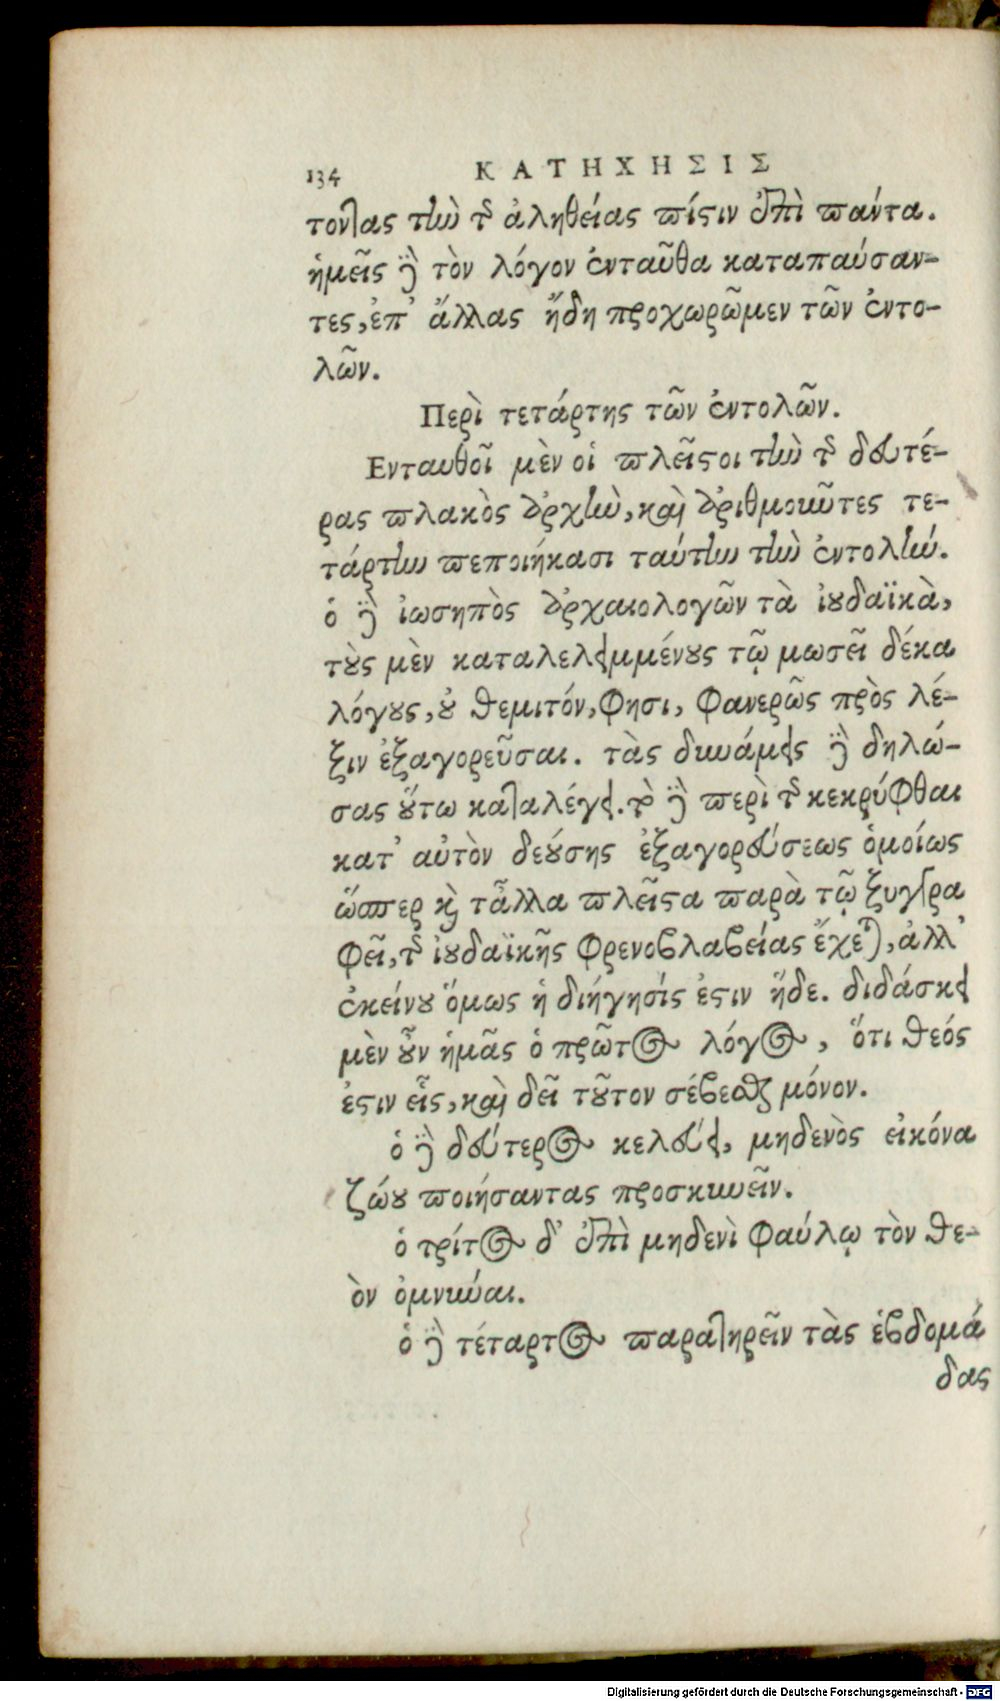 134 ΚΑΤΗΧΗΣΙΣ
τοντας τὴν τῆς ἀληθείας πίστιν ἐπὶ πάντα.
ἡμεῖς δὲ τὸν λόγον ἐνταῦθα καταπαύσαν-
τες, ἐπ' ἄλλας ἤδη προχωρῶμεν τῶν ἐντο-
λῶν.
Περὶ τετάρτης τῶν ἐντολῶν.
Ενταυθοῖ μὲν οἱ πλεῖστοι τὴν τῆς δευτέ-
ρας πλακὸς ἀρχὴν, καὶ ἀριθμοῦντες τε-
τάρτην πεποιήκασι ταύτην τὴν ἐντολήν.
ὁ δὲ ἰωσηπὸς ἀρχαιολογῶν τὰ ἰουδαϊκὰ,
τοὺς μὲν καταλελειμμένους τῷ μωσεῖ δέκα
λόγους, οὐ θεμιτόν, φησι, φανερῶς πρὸς λέ-
ξιν ἐξαγορεῦσαι. τὰς δυνάμεις δὲ δηλώ-
σας οὕτω καταλέγει. τὸ δὲ περὶ τοῦ κεκρύφθαι
κατ' αὐτὸν δεούσης ἐξαγορεύσεως ὁμοίως
ὥσπερ καὶ τἆλλα πλεῖστα παρὰ τῷ ξυγγρα
φεῖ, τῆς ἰουδαϊκῆς φρενοβλαβείας ἔχεται, ἀλλ'
ἐκείνου ὅμως ἡ διήγησίς ἐστιν ἥδε. διδάσκει
μὲν οὖν ἡμᾶς ὁ πρῶτος λόγος, ὅτι θεός
ἐστιν εἷς, καὶ δεῖ τοῦτον σέβεσθαι μόνον.
ὁ δὲ δεύτερος κελεύει, μηδενὸς εἰκόνα
ζώου ποιήσαντας προσκυνεῖν.
ὁ τρίτος δ' ἐπὶ μηδενὶ φαύλῳ τὸν θε-
ὸν ὀμνύναι.
ὁ δὲ τέταρτος παρατηρεῖν τὰς ἑβδομά
δας
Digitalisierung gefördert durch die Deutsche Forschungsgemeinschaft - DFG